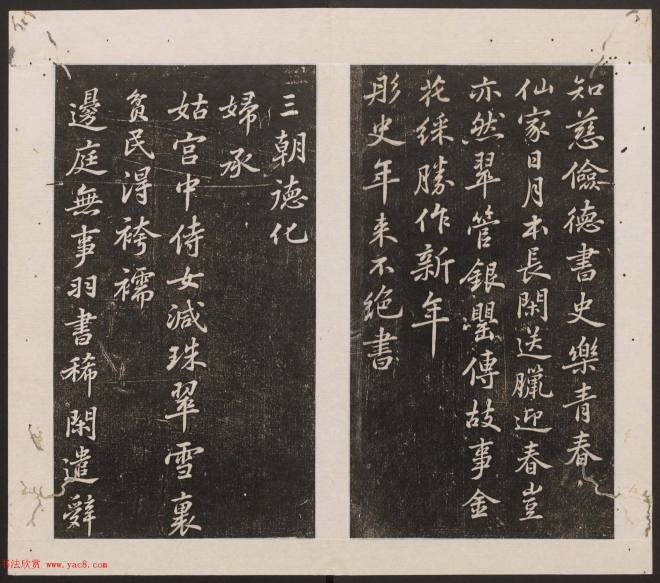 知慈儉德書史樂青春
仙家日月本長閑送臘迎春豈
亦然翠管銀罌傳故事金
花綵勝作新年
彤史年來不絕書
三朝德化
婦承
姑宮中侍女減珠翠雪裏
貧民得袴襦
邊庭無事羽書稀閑遣辭
书法欣赏 www.yac8.com